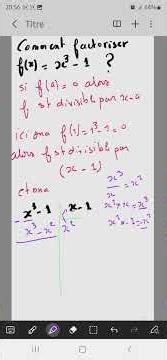 20:56
Titre
Comment factoriser
f(x) = x³ - 1 ?
si f(a) = 0 alors
f st divisible par x-a
ici ona f(1) = 1³-1 = 0
alors f st divisible par
(x - 1)
et ona
x³ - 1
x - 1
x³ - x²
x²
x³/x = x²
x² × x = x³
x² × -1 = -x²